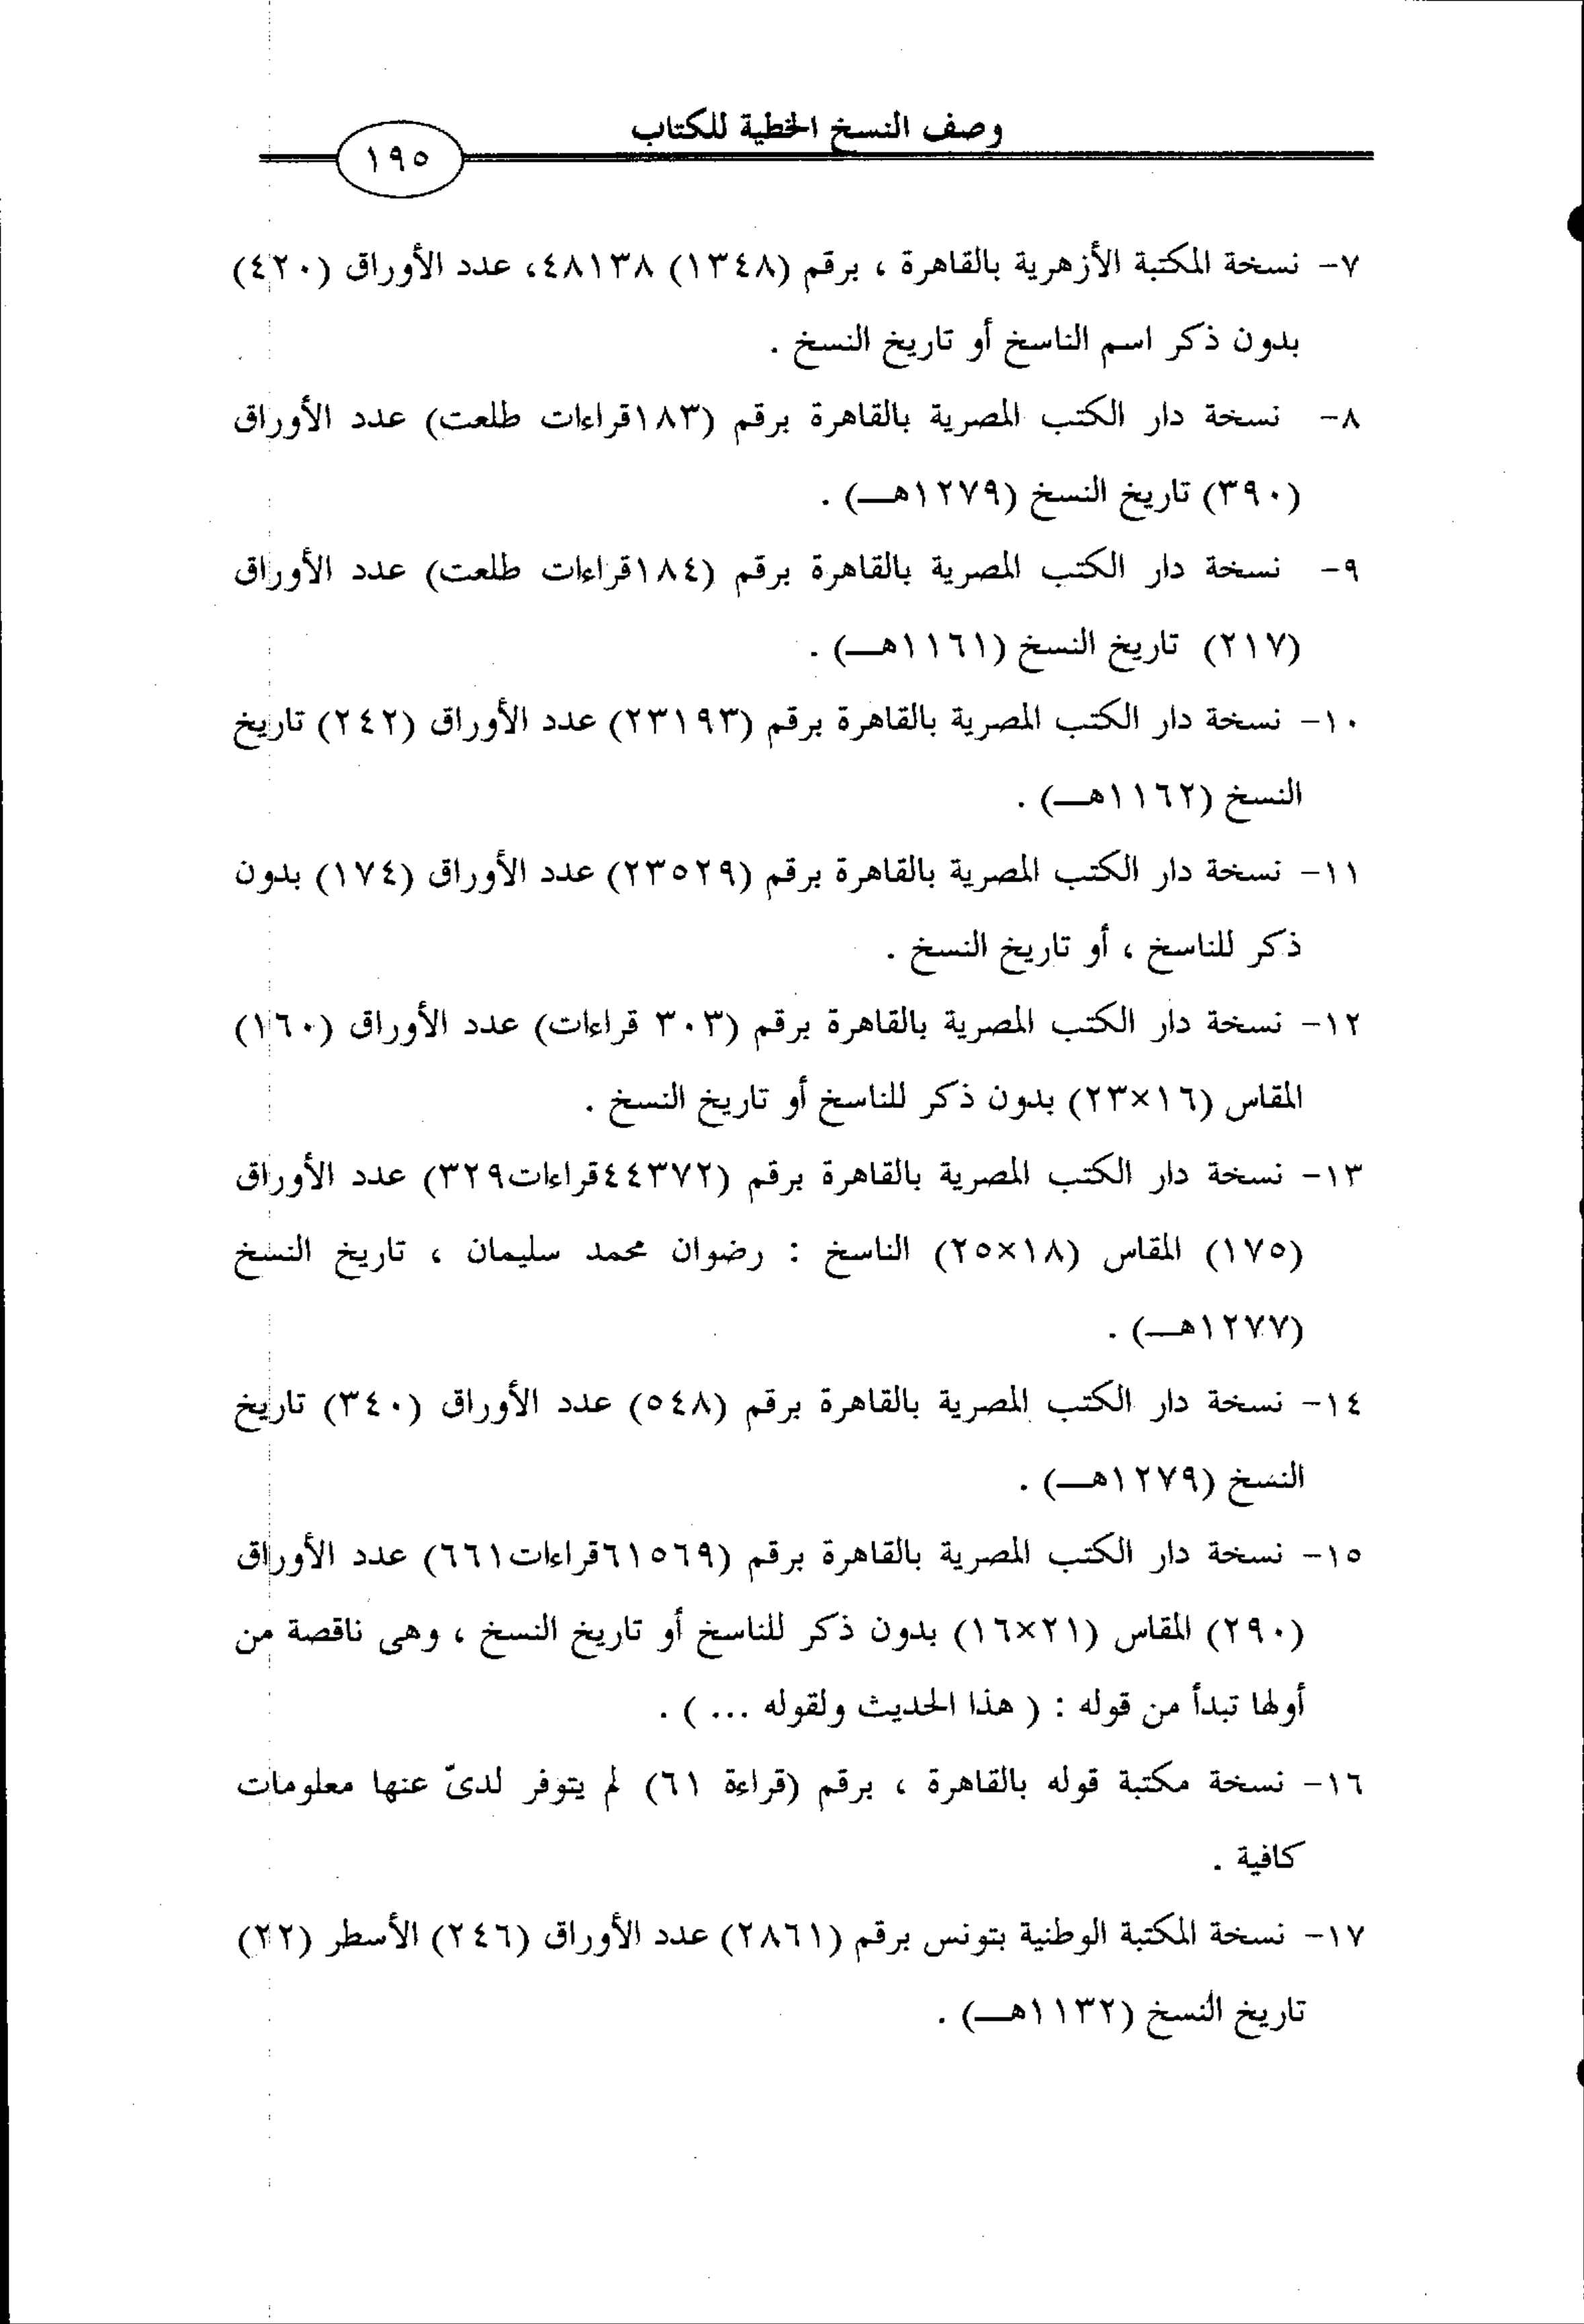 وصف النسخ الخطية للكتاب
١٩٥
٧- نسخة المكتبة الأزهرية بالقاهرة ، برقم (١٣٤٨) ٤٨١٣٨، عدد الأوراق (٤٢٠)
بدون ذكر اسم الناسخ أو تاريخ النسخ .
٨- نسخة دار الكتب المصرية بالقاهرة برقم (١٨٣قراءات طلعت) عدد الأوراق
(٣٩٠) تاريخ النسخ (١٢٧٩هـــ) .
٩- نسخة دار الكتب المصرية بالقاهرة برقم (١٨٤قراءات طلعت) عدد الأوراق
(٢١٧) تاريخ النسخ (١١٦١هـــ) .
١٠- نسخة دار الكتب المصرية بالقاهرة برقم (٢٣١٩٣) عدد الأوراق (٢٤٢) تاريخ
النسخ (١١٦٢هـــ) .
١١- نسخة دار الكتب المصرية بالقاهرة برقم (٢٣٥٢٩) عدد الأوراق (١٧٤) بدون
ذكر للناسخ ، أو تاريخ النسخ .
١٢- نسخة دار الكتب المصرية بالقاهرة برقم (٣٠٣ قراءات) عدد الأوراق (١٦٠)
المقاس (١٦×٢٣) بدون ذكر للناسخ أو تاريخ النسخ .
١٣- نسخة دار الكتب المصرية بالقاهرة برقم (٤٤٣٧٢قراءات٣٢٩) عدد الأوراق
(١٧٥) المقاس (١٨×٢٥) الناسخ : رضوان محمد سليمان ، تاريخ النسخ
(١٢٧٧هـــ) .
١٤- نسخة دار الكتب المصرية بالقاهرة برقم (٥٤٨) عدد الأوراق (٣٤٠) تاريخ
النسخ (١٢٧٩هـــ) .
١٥- نسخة دار الكتب المصرية بالقاهرة برقم (٦١٥٦٩قراءات٦٦١) عدد الأوراق
(٢٩٠) المقاس (٢١×١٦) بدون ذكر للناسخ أو تاريخ النسخ ، وهى ناقصة من
أولها تبدأ من قوله : ( هذا الحديث ولقوله ... ) .
١٦- نسخة مكتبة قوله بالقاهرة ، برقم (قراءة ٦١) لم يتوفر لدىّ عنها معلومات
كافية .
١٧- نسخة المكتبة الوطنية بتونس برقم (٢٨٦١) عدد الأوراق (٢٤٦) الأسطر (٢٢)
تاريخ النسخ (١١٣٢هـــ) .